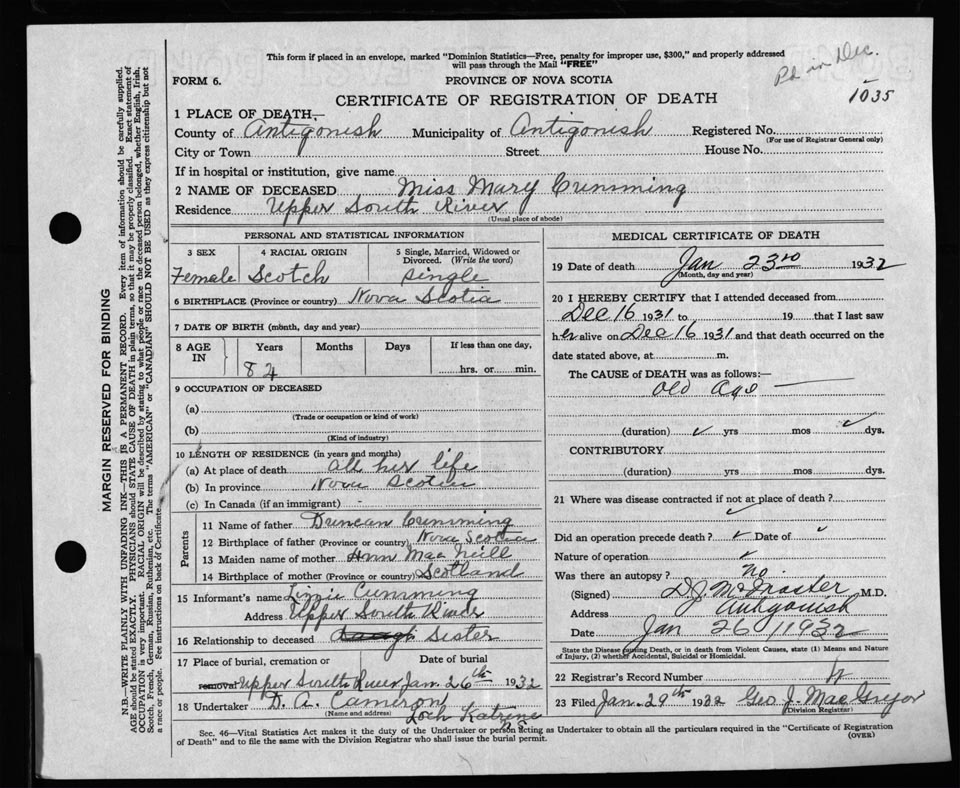 This form if placed in an envelope, marked "Dominion Statistics—Free, penalty for improper use, $300," and properly addressed
will pass through the Mail "FREE"
Pd in Dec.
FORM 6.
PROVINCE OF NOVA SCOTIA
1035
CERTIFICATE OF REGISTRATION OF DEATH
1 PLACE OF DEATH—
County of Antigonish Municipality of Antigonish Registered No.
(For use of Registrar General only)
City or Town Street House No.
If in hospital or institution, give name
2 NAME OF DECEASED Miss Mary Cumming
Residence Upper South River
(Usual place of abode)
PERSONAL AND STATISTICAL INFORMATION
3 SEX 4 RACIAL ORIGIN 5 Single, Married, Widowed or
Divorced. (Write the word)
Female Scotch single
6 BIRTHPLACE (Province or country) Nova Scotia
7 DATE OF BIRTH (month, day and year)
8 AGE IN Years Months Days If less than one day,
84 hrs. or min.
9 OCCUPATION OF DECEASED
(a)
(Trade or occupation or kind of work)
(b)
(Kind of industry)
10 LENGTH OF RESIDENCE (in years and months)
(a) At place of death all her life
(b) In province Nova Scotia
(c) In Canada (if an immigrant)
Parents
11 Name of father Duncan Cumming
12 Birthplace of father (Province or country) Nova Scotia
13 Maiden name of mother Ann MacNeill
14 Birthplace of mother (Province or country) Scotland
15 Informant's name Lizzie Cumming
Address Upper South River
16 Relationship to deceased Sister
17 Place of burial, cremation or removal Date of burial
Upper South River Jan. 26th 1932
18 Undertaker D. A. Cameron
(Name and address) Loch Katrine
MEDICAL CERTIFICATE OF DEATH
19 Date of death Jan 23rd 1932
(Month, day and year)
20 I HEREBY CERTIFY that I attended deceased from
Dec 16 1931 to 19 that I last saw
her alive on Dec 16 1931 and that death occurred on the
date stated above, at m.
The CAUSE of DEATH was as follows:—
Old Age
(duration) yrs mos dys.
CONTRIBUTORY
(duration) yrs. mos. dys.
21 Where was disease contracted if not at place of death?
Did an operation precede death? Date of
Nature of operation
Was there an autopsy? No
(Signed) M.D.
Address Antigonish
Date Jan 26 1932
State the Disease causing Death, or in death from Violent Causes, state (1) Means and Nature
of Injury, (2) whether Accidental, Suicidal or Homicidal.
22 Registrar's Record Number
23 Filed Jan. 29th 1932 Geo J. MacGregor
(Division Registrar)
Sec. 46—Vital Statistics Act makes it the duty of the Undertaker or person acting as Undertaker to obtain all the particulars required in the "Certificate of Registration
of Death" and to file the same with the Division Registrar who shall issue the burial permit.
(OVER)
MARGIN RESERVED FOR BINDING
N.B.—WRITE PLAINLY WITH UNFADING INK—THIS IS A PERMANENT RECORD. Every item of information should be carefully supplied.
AGE should be stated EXACTLY. PHYSICIANS should STATE CAUSE OF DEATH in plain terms, so that it may be properly classified. Exact statement of
OCCUPATION is very important. RACIAL ORIGIN will be described by stating to what people or race the deceased person belonged, whether English, Irish,
Scotch, French, German, Russian, Ruthenian, etc. The terms "AMERICAN" or "CANADIAN" SHOULD NOT BE USED as they express citizenship but not
a race or people. See instructions on back of Certificate.